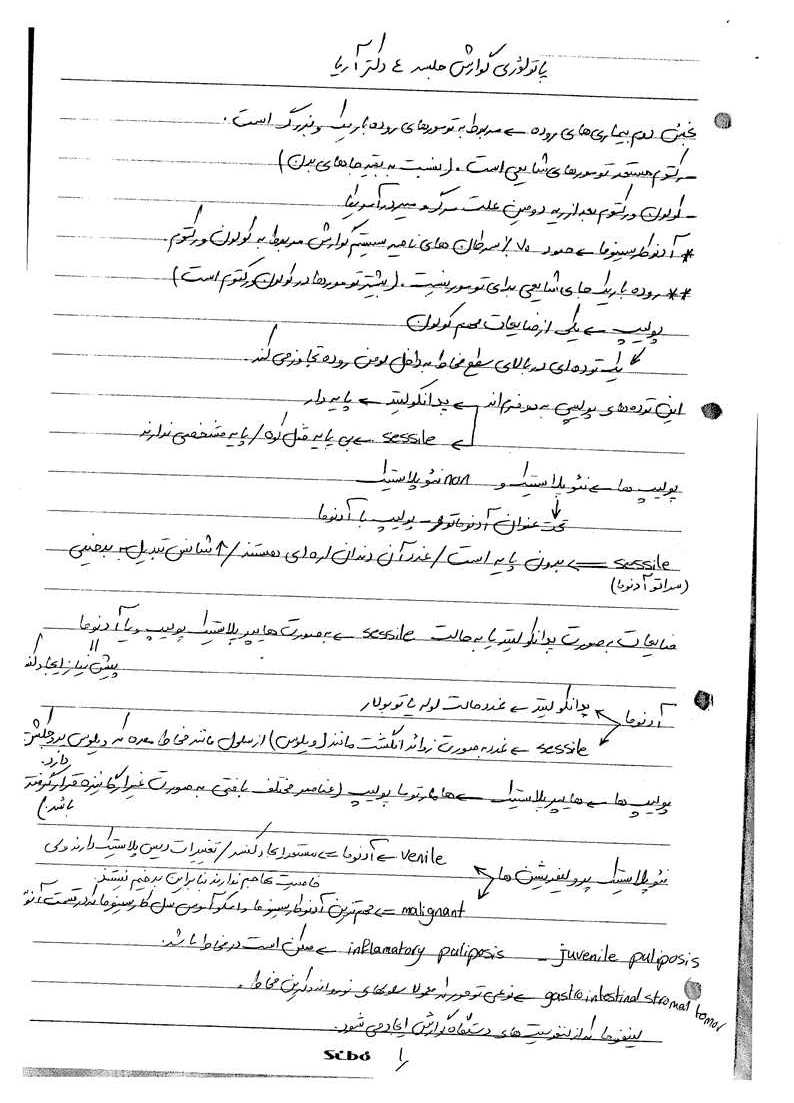 پاتولوژی گوارش جلسه ٤ دکتر آریا
بخش دوم بیماری های روده ← مربوط به تومورهای روده باریک و بزرگ است.
– رکتوم مستعد تومورهای شایعی است. (نسبت به بقیه جاهای بدن)
– کولون و رکتوم بعد از ریه دومین علت مرگ و میر در آمریکا
* آدنوکارسینوما ← حدود ۷۰٪ سرطان های ناحیه سیستم گوارش مربوط به کولون و رکتوم.
** روده باریک جای شایعی برای تومور نیست. (بیشتر تومورها در کولون و رکتوم است)
پولیپ ← یکی از ضایعات مهم کولون
یک توده ای در بالای سطح مخاط به داخل لومن روده تجاوز می کند.
این توده های پولیپی به دو فرم اند ← پدانکولیتد ← پایه دار
← sessile ← بی پایه / پایه مشخصی ندارند
پولیپ ها ← نئوپلاستیک و non نئوپلاستیک
تحت عنوان آدنوماتوز – پولیپ یا آدنوما
sessile ← بدون پایه است / غدد آن دندان اره ای هستند / ↑ شانس تبدیل به بدخیمی
(سراتو آدنوما)
ضایعات به صورت پدانکولیتد یا به حالت sessile ← به صورت هایپرپلاستیک پولیپ و یا آدنوما
پیش نیاز ایجاد کند
آدنوما پدانکولیتد ← غدد حالت لوله یا توبولار
sessile ← غدد به صورت زوائد انگشت مانند (ویلوس) از سلول مانند مخاط معده که ویلوس
دارد.
پولیپ ها ← هایپرپلاستیک ← هامارتوما پولیپ (عناصر مختلف بافتی به صورت غیرارگانیزه قرار گرفته
باشد)
نئوپلاستیک پرولیفریشن ها venile ← آدنوما ← مستعد ایجاد / تغییرات دیس پلاستیک دارند ولی
خاصیت تهاجم ندارند بنابراین بدخیم نیستند.
malignant ← مهم ترین آدنوکارسینوما و اسکواموس سل کارسینوما که در قسمت
juvenile puliposis – inflamatory puliposis ← ممکن است در مخاط باشد.
gastrointestinal stromal tomor ← نوعی تومور
لینفوما که از لنفوسیت های دستگاه گوارش ایجاد می شود.
Scbo ۱